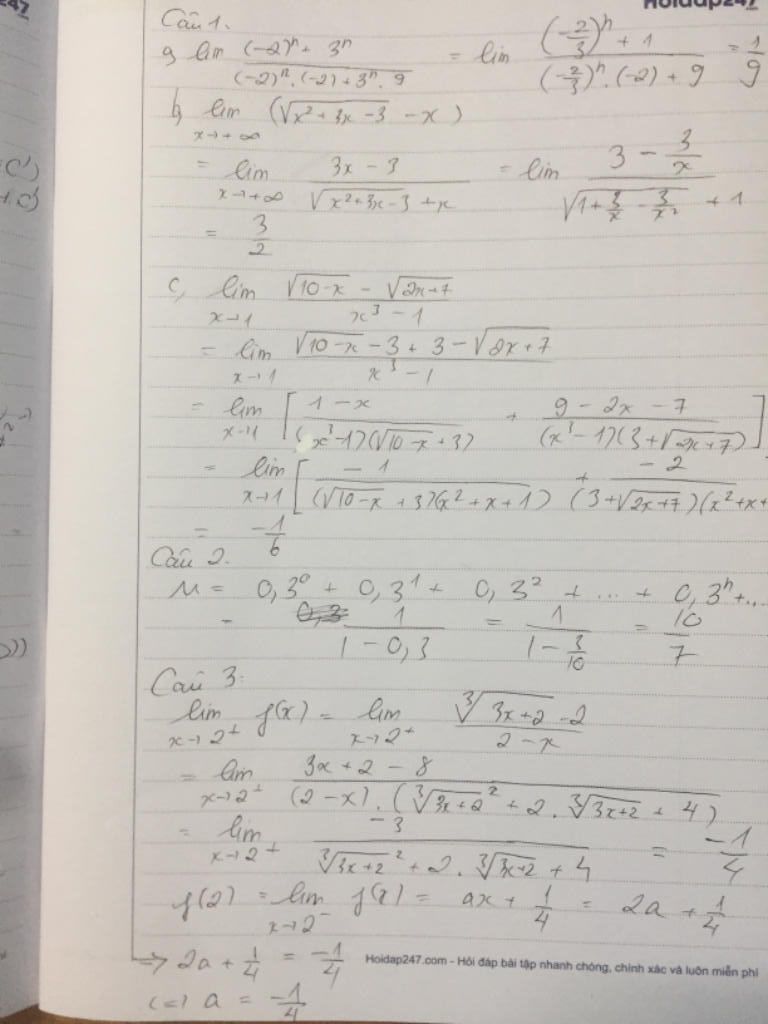 Hoidap247
Câu 1.
a, lim ((-2)^n + 3^n)/((-2)^n.(-2) + 3^n.9) = lim ((-2/3)^n + 1)/((-2/3)^n.(-2) + 9) = 1/9
b, lim x→+∞ (√(x²+3x-3) - x)
= lim x→+∞ (3x-3)/(√(x²+3x-3) + x) = lim (3 - 3/x)/(√(1 + 3/x - 3/x²) + 1)
= 3/2
c, lim x→1 (√(10-x) - √(2x+7))/(x³-1)
= lim x→1 (√(10-x) - 3 + 3 - √(2x+7))/(x³-1)
= lim x→1 [(1-x)/((x³-1)(√(10-x)+3)) + (9-2x-7)/((x³-1)(3+√(2x+7)))]
= lim x→1 [-1/((√(10-x)+3)(x²+x+1)) + -2/((3+√(2x+7))(x²+x+
= -1/6
Câu 2.
M = 0,3⁰ + 0,3¹ + 0,3² + ... + 0,3^n + ..
= 1/(1-0,3) = 1/(1-3/10) = 10/7
Câu 3:
lim x→2⁺ f(x) = lim x→2⁺ (∛(3x+2) - 2)/(2-x)
= lim x→2⁺ (3x+2-8)/((2-x).(∛(3x+2)² + 2.∛(3x+2) + 4))
= lim x→2⁺ -3/(∛(3x+2)² + 2.∛(3x+2) + 4) = -1/4
f(2) = lim x→2⁻ f(x) = ax + 1/4 = 2a + 1/4
=> 2a + 1/4 = -1/4
Hoidap247.com - Hỏi đáp bài tập nhanh chóng, chính xác và luôn miễn phí
(=) a = -1/4